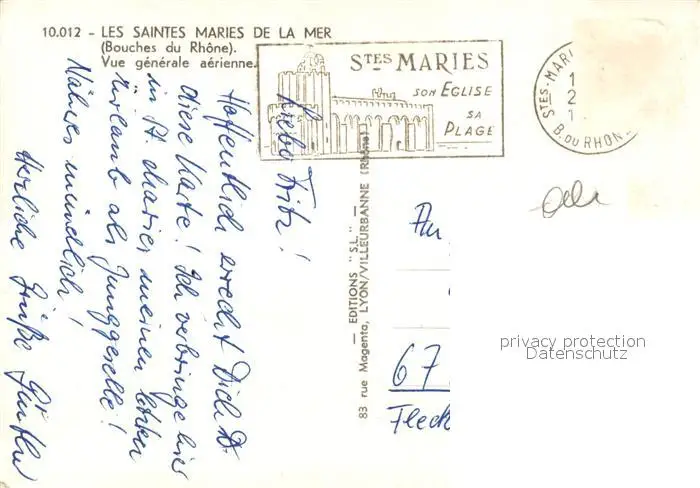 10.012 - LES SAINTES MARIES DE LA MER
(Bouches du Rhône).
Vue générale aérienne.
STES MARIES
SON EGLISE
SA
PLAGE
STES-MARI
1
2
1
B. DU RHON
Liebe Fritz!
Hoffentlich erreicht Dich
diese Karte! Ich verbringe hier
in St. Maries meinen letzten
Urlaub als Junggeselle!
Näheres mündlich!
Herzliche Grüße Günther
— EDITIONS "S.L." —
83 rue Magenta, LYON/VILLEURBANNE (Rhône)
An
67
Fleck
privacy protection
Datenschutz